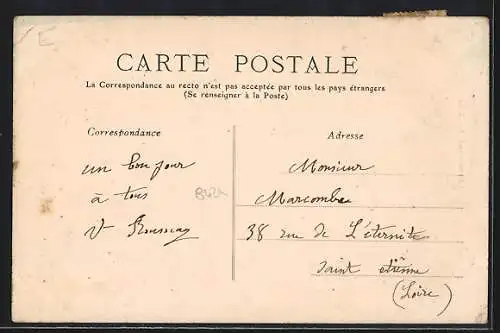 E
CARTE POSTALE
La Correspondance au recto n'est pas acceptée par tous les pays étrangers
(Se renseigner à la Poste)
Correspondance
un bon jour
à tous
V
Adresse
Monsieur
Marcombe
38 rue de L'éternite
Saint etienne
(Loire)